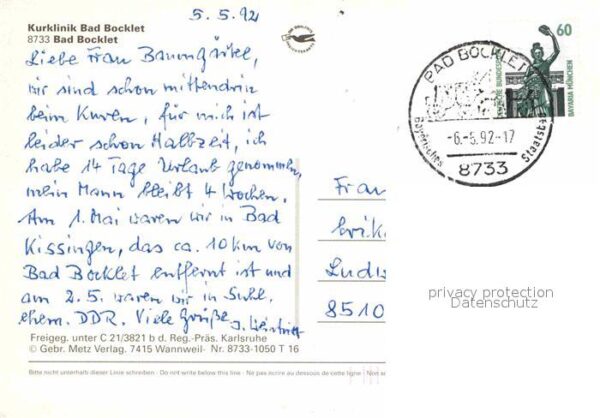 5.5.92
Kurklinik Bad Bocklet
8733 Bad Bocklet
Liebe Frau Baumgärtel,
wir sind schon mittendrin
beim Kuren, für mich ist
leider schon Halbzeit, ich
habe 14 Tage Urlaub genommen,
mein Mann bleibt 4 Wochen.
Am 1. Mai waren wir in Bad
Kissingen, das ca. 10 km von
Bad Bocklet entfernt ist und
am 2.5. waren wir in Suhl.
ehem. DDR. Viele Grüße
Freigeg. unter C 21/3821 b d. Reg.-Präs. Karlsruhe
© Gebr. Metz Verlag. 7415 Wannweil- Nr. 8733-1050 T 16
Bitte nicht unterhalb dieser Linie schreiben - Do not write below this line - Ne pas écrire au dessous de cette ligne
60
BAYARIA MÜNCHEN
BAD BOCKLET
-6.-5.92-17
Bayerisches Staatsbad
8733
Frau
Erik
Ludw
8510
privacy protection
Datenschutz